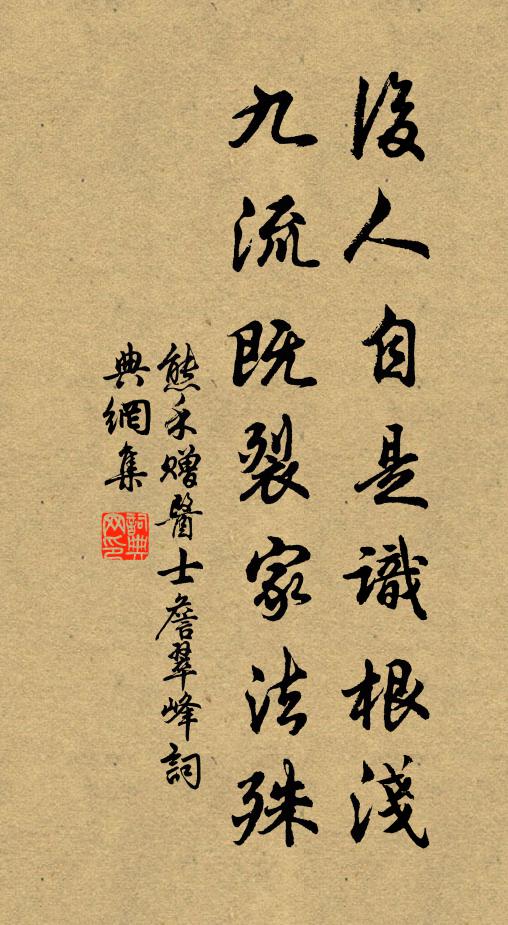 後人自是識根淺
九流既裂家法殊
熊禾贈醫士詹翠峰詞
典網集
詞典網印